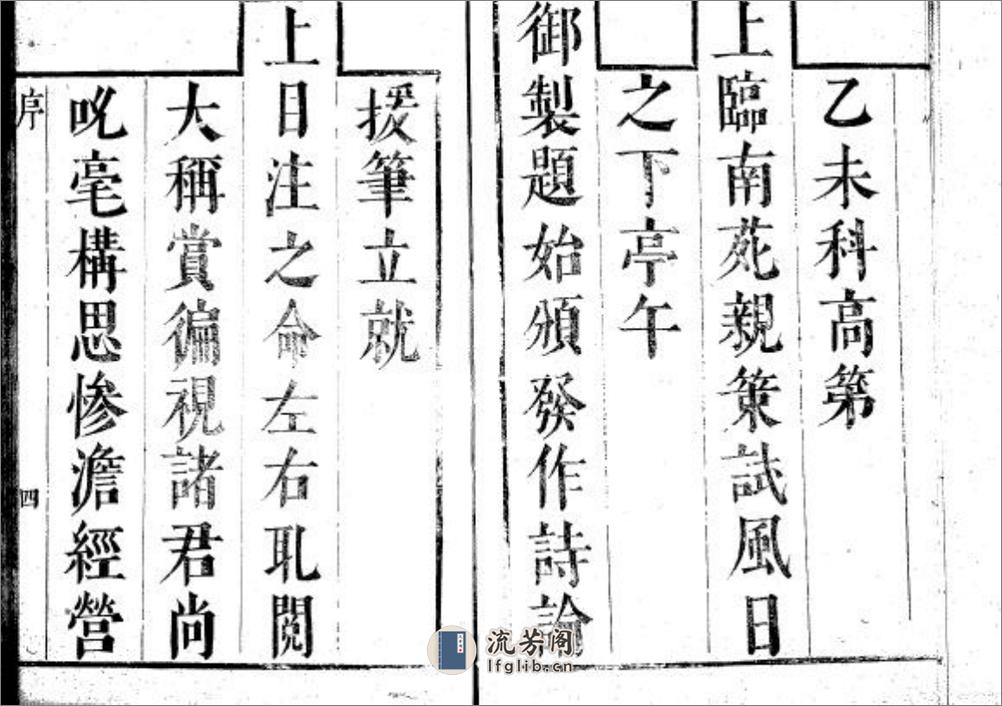 乙未科高第
上臨南苑親策試風日
之下亭午
御製題始頒發作詩論
援筆立就
上目注之命左右取閱
大稱賞徧視諸君尚
吮毫構思慘澹經營
序
四
流芳阁
lfglib.cn